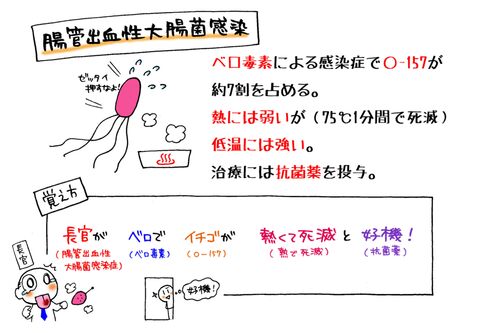 腸管出血性大腸菌感染
ベロ毒素による感染症でO-157が
約7割を占める。
熱には弱いが（75℃1分間で死滅）
低温には強い。
治療には抗菌薬を投与。
ゼッタイ
押すなよ！
覚え方
長官が ベロで イチゴが 熱くて死滅と 好機！
（腸管出血性
大腸菌感染症） （ベロ毒素） （O-157） （熱で死滅） （抗菌薬）
長官
好機！